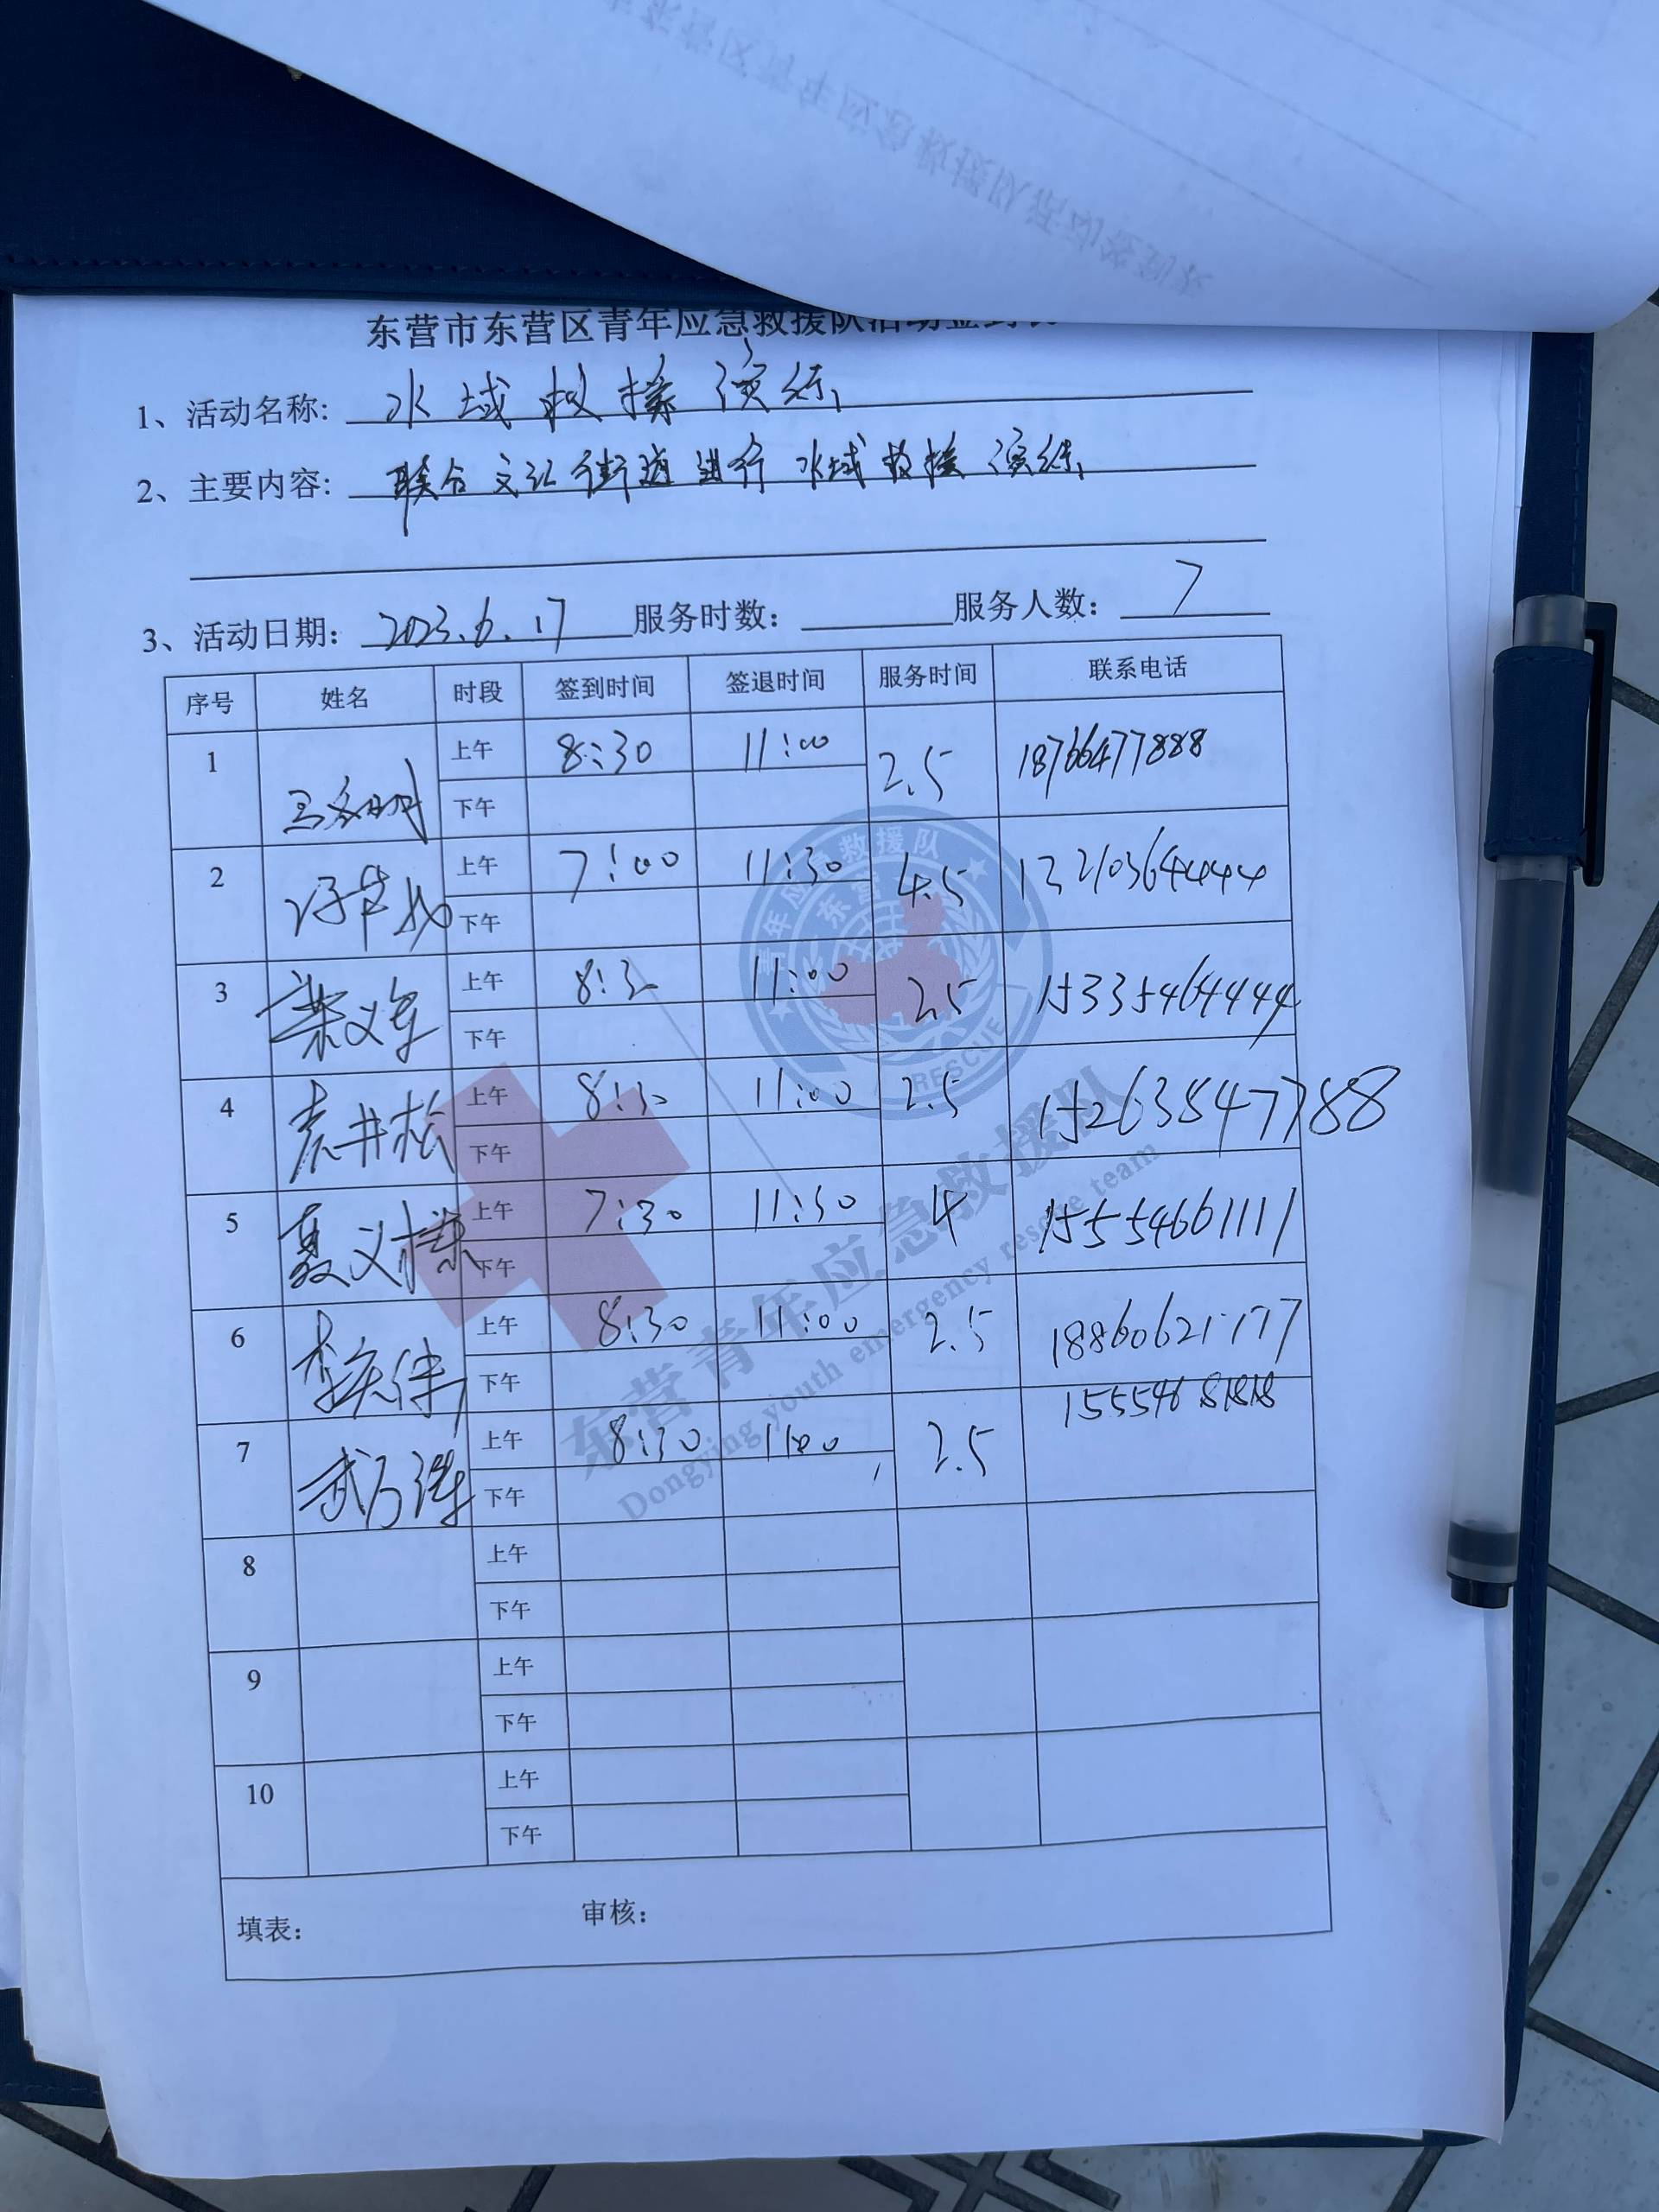 东营市东营区青年应急救援队活动签到表
1、活动名称: 水域救援演练
2、主要内容: 联合文汇街道进行水域救援演练
3、活动日期: 2023.6.17 服务时数: 服务人数: 7
序号 姓名 时段 签到时间 签退时间 服务时间 联系电话
1 上午 8:30 11:00 2.5 18766477888
下午
2 上午 7:00 11:30 4.5 13210364444
下午
3 梁义军 上午 8:3 11:00 2.5 15335464444
下午
4 袁井松 上午 8:30 11:00 2.5 15263847788
下午
5 聂义標 上午 7:30 11:30 4 15554661111
下午
6 李庆伟 上午 8:30 11:00 2.5
下午
7 武万译 上午 8:30 11:00 2.5 15554681818
下午
8 上午
下午
9 上午
下午
10 上午
下午
填表: 审核:
青年应急救援队
东营
RESCUE
东营青年应急救援队
Dongying youth emergency rescue team